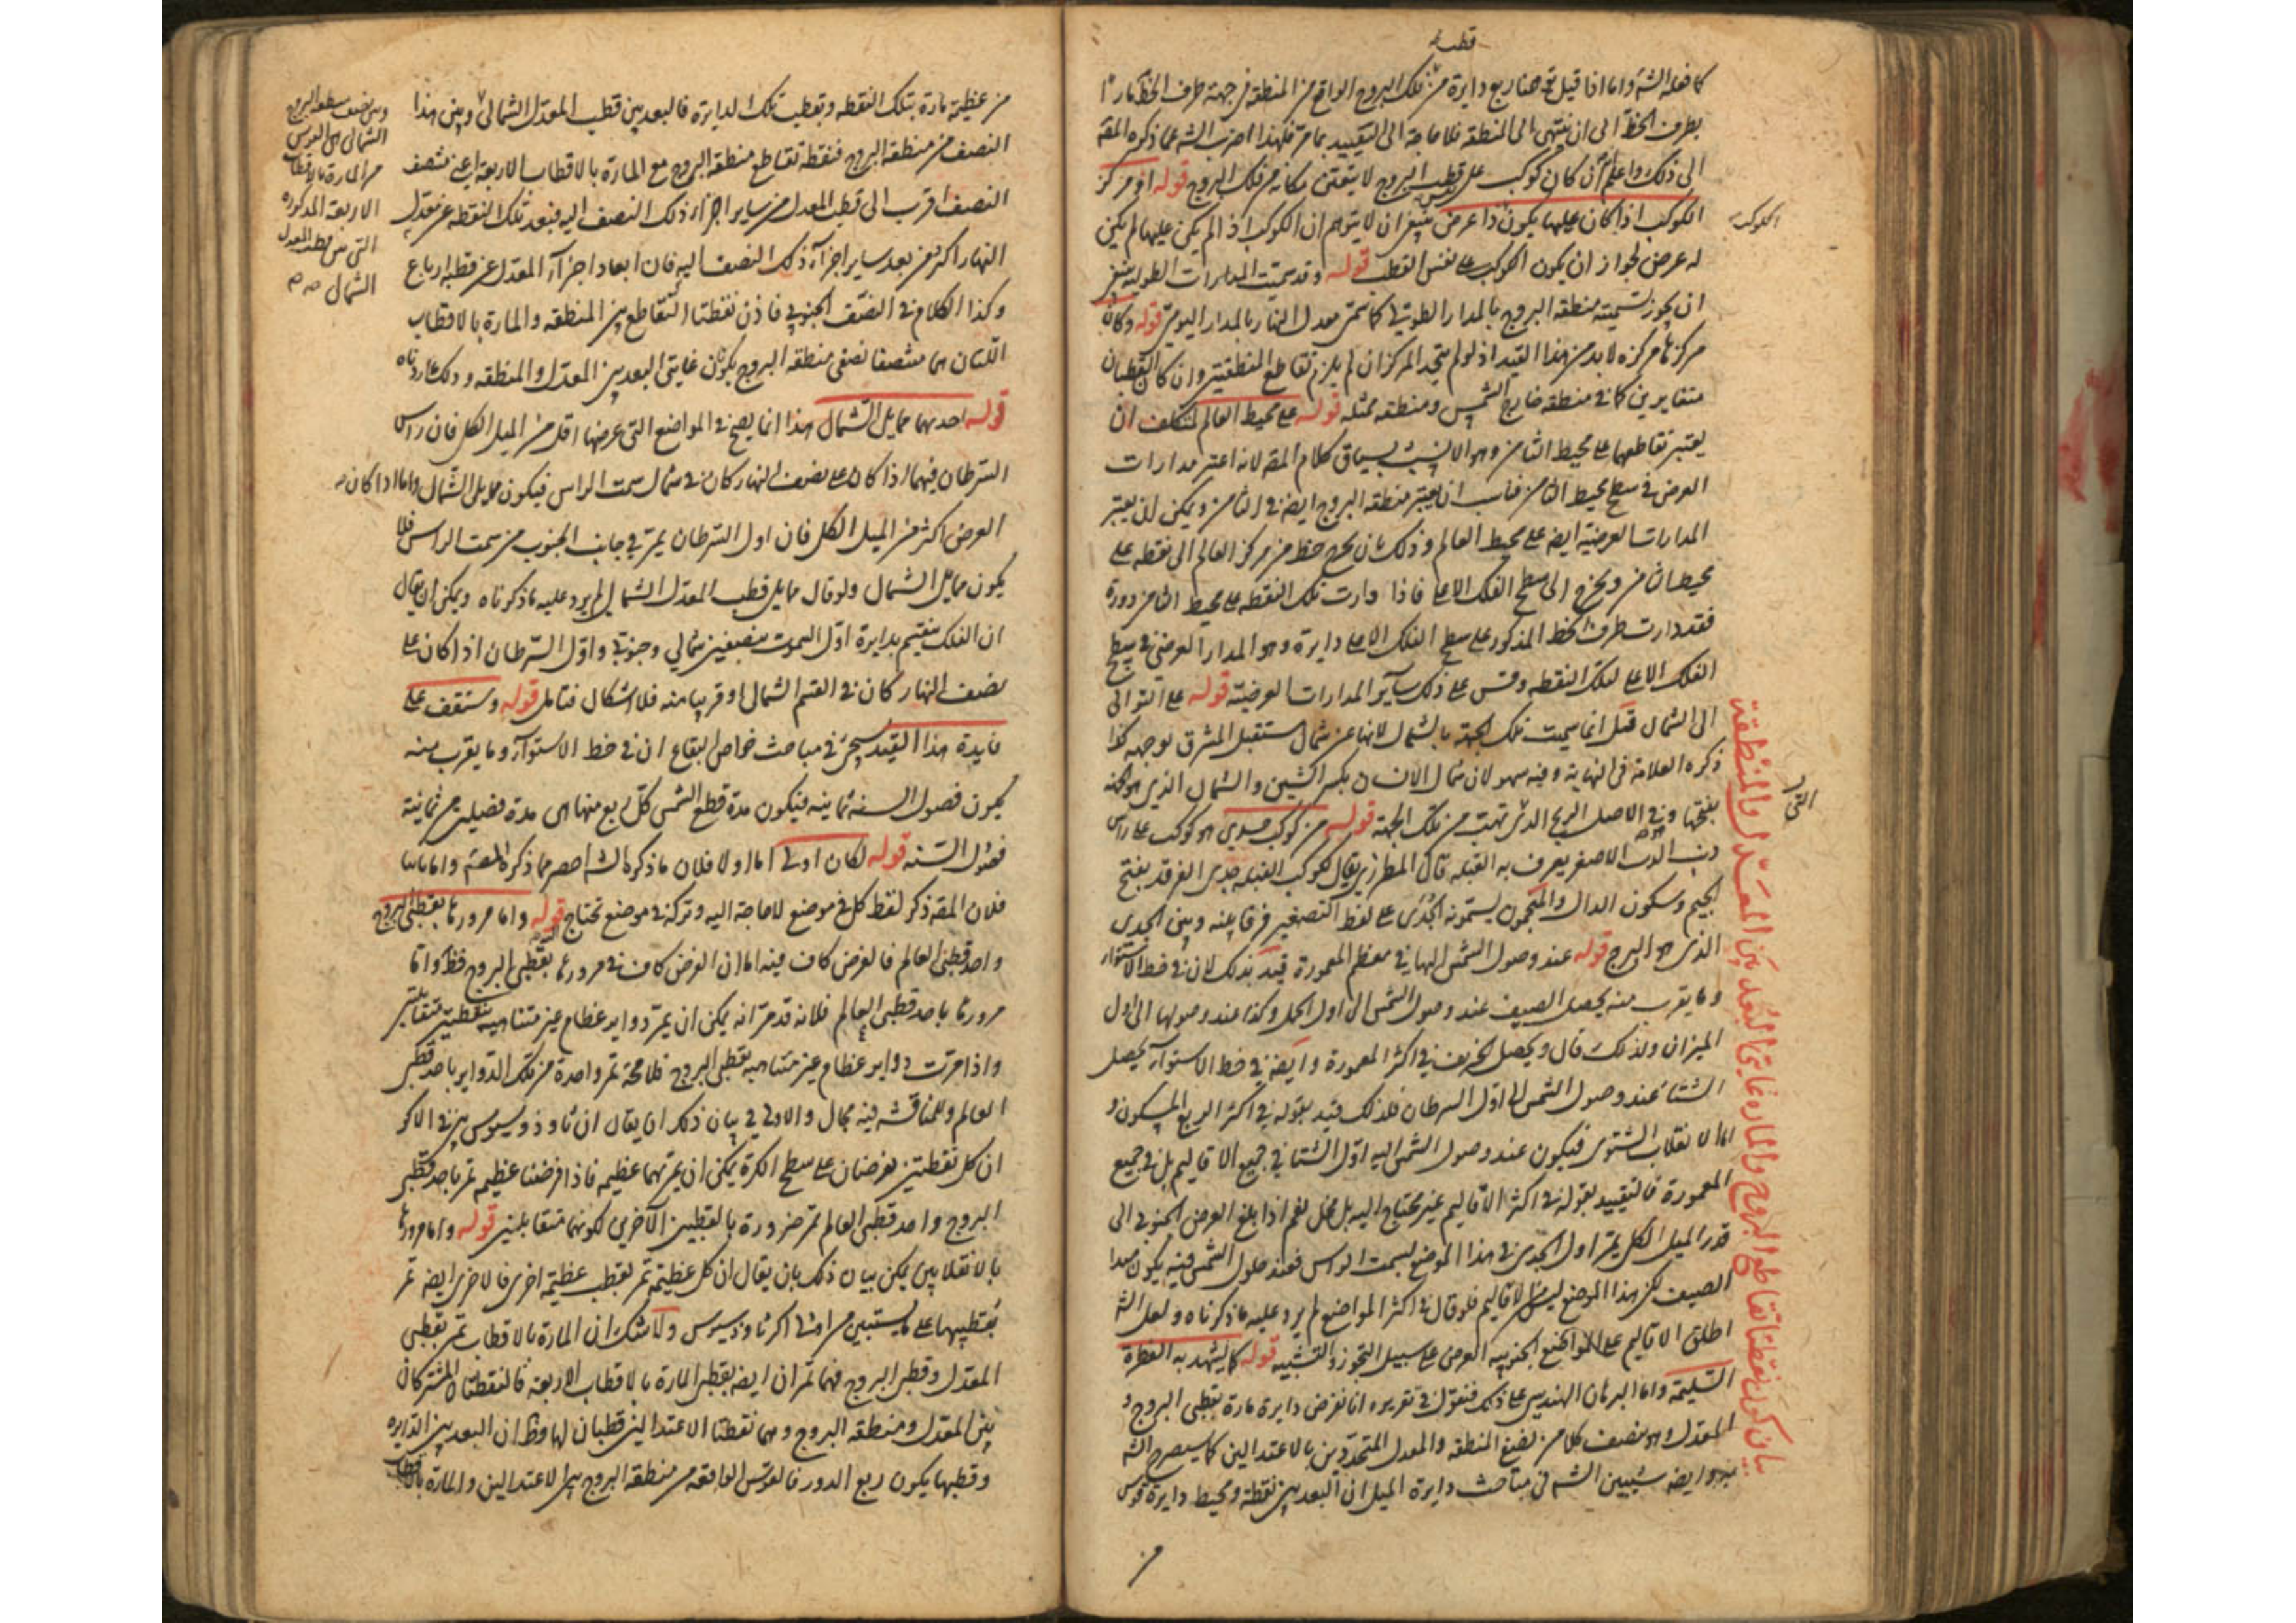 قطبه
كما فعله الشه واما اذا قيل تخرج هنا ربع دايرة من فلك البروج الواقع من المنطقه في جهة طرف الخط مارا
بطرف الخط الى ان ينتهى الى المنطقه فلا حاجة الى التقييد بما مر فلهذا اضرب الشه عما ذكره المصه
الى ذلك واعلم ان كان كوكب على قطب البروج لا يتعين مكانه من فلك البروج قوله او مركز
الكوكب اذا كان عليها يكون ذا عرض ينبغى ان لا يتوهم ان الكوكب اذا لم يكن عليها لم يكن
الكوكب
له عرض لجواز ان يكون الكوكب على نفس القطب قوله وقد سميت المدارات الطولية ينبغى
ان يجوز تسميته منطقه البروج بالمدار الطولى كما يسمى معدل النهار بالمدار اليومى قوله وكان
مركزها مركزه لا بد من هذا القيد اذ لو لم يتحد المركزان لم يلزم تقاطع المنطقتين وان كان القطبان
متغايرين كما في منطقه خارج الشمس ومنطقه ممثله قوله على محيط العالم لتكلف ان
يعتبر تقاطعهما على محيط الثامن وهو الانسب بسياق كلام المصه لانه اعتبر مدارات
العرض في سطح محيط الثامن فناسب ان يعتبر منطقه البروج ايضه في الثامن ويمكن ان يعتبر
المدارات العرضية ايضه على محيط العالم وذلك بان يخرج خط من مركز العالم الى نقطه على
محيط الثامن ويخرج الى سطح الفلك الاعلى فاذا دارت تلك النقطه على محيط الثامن دورة
فقد دارت طرف الخط المذكور على سطح الفلك الاعلى دايرة وهو المدار العرضى في سطح
الفلك الاعلى لتلك النقطه وقس على ذلك سآير المدارات العرضية قوله على التوالى
الى الشمال قيل انما سميت تلك الجهة بالشمال لانها عن شمال مستقبل المشرق بوجهه كذا
ذكره العلامة في النهاية وفيه سهو لان شمال الانسان بكسر الشين والشمال الذى هو الجهة
بفتحها وفي الاصل الريح التى تهب من تلك الجهة قوله من كوكب جدى هو كوكب على راس
ذنب الدب الاصغر يعرف به القبله قال المطرزى يقال لكوكب القبله جدى الفرقد بفتح
الجيم وسكون الدال والمنجمون يسمونه الجُدَىّ على لفظ التصغير فرقا بينه وبين الجدى
الذى هو البرج قوله عند وصول الشمس اليها في معظم المعمورة قيد بذلك لان في خط الاستوآء
وما يقرب منه يحصل الصيف عند وصول الشمس الى اول الحمل وكذا عند وصولها الى اول
الميزان ولذلك قال ويحصل الخريف في اكثر المعمورة وايضه في خط الاستوآء يحصل
الشتآء عند وصول الشمس الى اول السرطان فلذلك قيد بقوله في اكثر الربع المسكون و
اما الانقلاب الشتوى فيكون عند وصول الشمس اليه اول الشتا في جميع الاقاليم بل في جميع
المعمورة فالتقييد بقوله في اكثر الاقاليم غير محتاج اليه بل مخل نعم اذا بلغ العرض الجنوبى الى
قدر الميل الكلى يمر اول الجدى في هذا الموضع بسمت الراس فعند حلول الشمس فيه يكون مبدا
الصيف لكن هذا الموضع ليس من الاقاليم فلو قال في اكثر المواضع لم يرد عليه ما ذكرناه ولعل الشه
اطلق الاقاليم على المواضع الجنوبيه العرض على سبيل التجوز والتشبيه قوله كما يشهد به الفطرة
السليمة واما البرهان الهندسى على ذلك فنقول في تقريره انا نفرض دايرة مارة بقطبى البروج و
المعدل وهو منصف كلا من نصفى المنطقه والمعدل المتحددين بالاعتدالين كما سيصرح الشه
به وايضه سيبين الشه في مباحث دايرة الميل ان البعد بين نقطة ومحيط دايرة قوس
من
بيان كون نقطتا تقاطع البروج والمارة غايتى البعد بين المعدل والمنطقة
من عظيمة مارة بتلك النقطه وبقطب تلك الدايرة فالبعد بين قطب المعدل الشمالى وبين هذا
النصف من منطقة البروج فنقطه تقاطع منطقة البروج مع المارة بالاقطاب الاربعة اعنى منتصف
النصف اقرب الى قطب المعدل من ساير اجزاء ذلك النصف اليه فبعد تلك النقطه عن معدل
النهار اكثر من بعد ساير اجزآء ذلك النصف اليه فان ابعاد اجزآء المعدل عن قطبه ارباع
وكذا الكلام في النصف الجنوبى فاذن نقطتا التقاطع بين المنطقه والمارة بالاقطاب
اللتان هما منتصفا نصفى منطقه البروج يكونان غايتى البعد بين المعدل والمنطقه وذلك ما اردناه
قوله احدهما مما يلى الشمال هذا انما يصح في المواضع التى عرضها اقل من الميل الكلى فان راس
السرطان فيهما اذا كان على نصف النهار كان في شمال سمت الراس فيكون مما يلى الشمال واما اذا كان
العرض اكثر من الميل الكلى فان اول السرطان يمر في جانب الجنوب من سمت الراس فلا
يكون مما يلى الشمال ولو قال مما يلى قطب المعدل الشمالى لم يرد عليه ما ذكرناه ويمكن ان يقال
ان الفلك ينقسم بدايرة اول السموت بنصفين شمالى وجنوبى واول السرطان اذا كان على
نصف النهار كان في القسم الشمالى او قريبا منه فلا اشكال فتامل قوله وستقف على
فايدة هذا القيد سيجئ في مباحث خواص البقاع ان في خط الاستوآء وما يقرب منه
يكون فصول السنه ثمانية فيكون مدة قطع الشمس كل ربع منها هى مدة فصلين من ثمانية
فصول السنه قوله لكان اولى اما اولا فلان ما ذكره الشه اخصر مما ذكره المصه واما ثانيا
فلان المصه ذكر لفظ كل في موضع لا حاجة اليه وتركه في موضع يحتاج قوله واما مرورها بقطبى البروج
واحد قطبى العالم فالفرض كاف فيه اما ان الفرض كاف في مرورها بقطبى البروج فظ واما
مرورها باحد قطبى العالم فلانه قد مر انه يمكن ان يمر دواير عظام غير متناهيه بنقطتين متقابلتين
واذا مرت دواير عظام غير متناهيه بقطبى البروج فلا محة تمر واحدة من تلك الدواير باحد قطبى
العالم وللمناقشه فيه مجال والاولى في بيان ذلك ان يقال ان ثاوذوسيوس بين في الاكر
ان كل نقطتين تفرضان على سطح الكرة يمكن ان يمر بهما عظيمه فاذا فرضنا عظيمه تمر باحد قطبى
البروج واحد قطبى العالم تمر ضرورة بالقطبين الآخرين لكونهما متقابلين قوله واما مرورها
بالانقلابين يمكن بيان ذلك بان يقال ان كل عظيمة تمر بقطب عظيمة اخرى فالاخرى ايضه تمر
بقطبيها على ما يستبين من اكر ثاوذوسيوس ولا شك ان المارة بالاقطاب تمر بقطبى
المعدل وقطبى البروج فهما تمران ايضه بقطبى المارة بالاقطاب الاربعه فالنقطتان المشتركتان
بين المعدل ومنطقه البروج وهما نقطتا الاعتدالين قطبان لها وظ ان البعد بين الدايره
وقطبها يكون ربع الدور فالقوس الواقعه من منطقة البروج بين الاعتدالين والمارة بالاقطاب
وبين نصف منطقه البروج
الشمالى هى القوس
من المارة بالاقطاب
الاربعة المذكوره
التى بين قطب المعدل
الشمالى